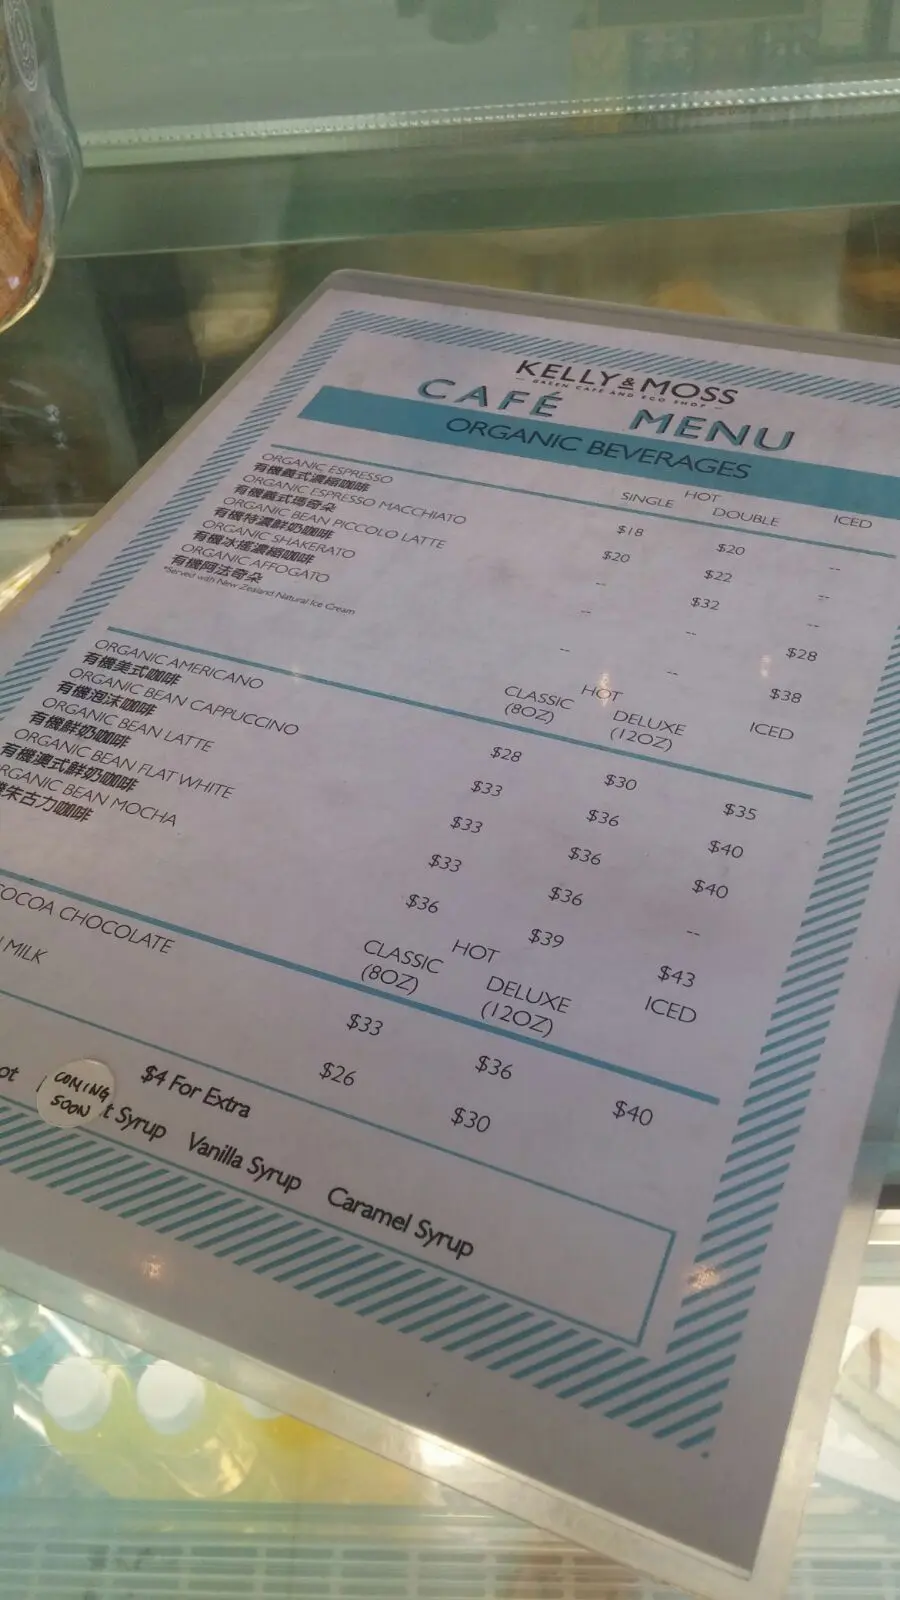 KELLY & MOSS
GREEN CAFE AND ECO SHOP
CAFÉ MENU
ORGANIC BEVERAGES
HOT
SINGLE DOUBLE ICED
ORGANIC ESPRESSO $18 $20 --
有機義式濃縮咖啡
ORGANIC ESPRESSO MACCHIATO $20 $22 --
有機義式瑪奇朵
ORGANIC BEAN PICCOLO LATTE -- $32 --
有機特濃鮮奶咖啡
ORGANIC SHAKERATO -- -- $28
有機冰搖濃縮咖啡
ORGANIC AFFOGATO -- -- $38
有機阿法奇朵
*Served with New Zealand Natural Ice Cream
HOT
CLASSIC DELUXE ICED
(8OZ) (12OZ)
ORGANIC AMERICANO $28 $30 $35
有機美式咖啡
ORGANIC BEAN CAPPUCCINO $33 $36 $40
有機泡沫咖啡
ORGANIC BEAN LATTE $33 $36 $40
有機鮮奶咖啡
ORGANIC BEAN FLAT WHITE $33 $36 --
有機澳式鮮奶咖啡
RGANIC BEAN MOCHA $36 $39 $43
朱古力咖啡
HOT
CLASSIC DELUXE ICED
(8OZ) (12OZ)
COCOA CHOCOLATE $33 $36 $40
MILK $26 $30
$4 For Extra
ot COMING SOON t Syrup Vanilla Syrup Caramel Syrup